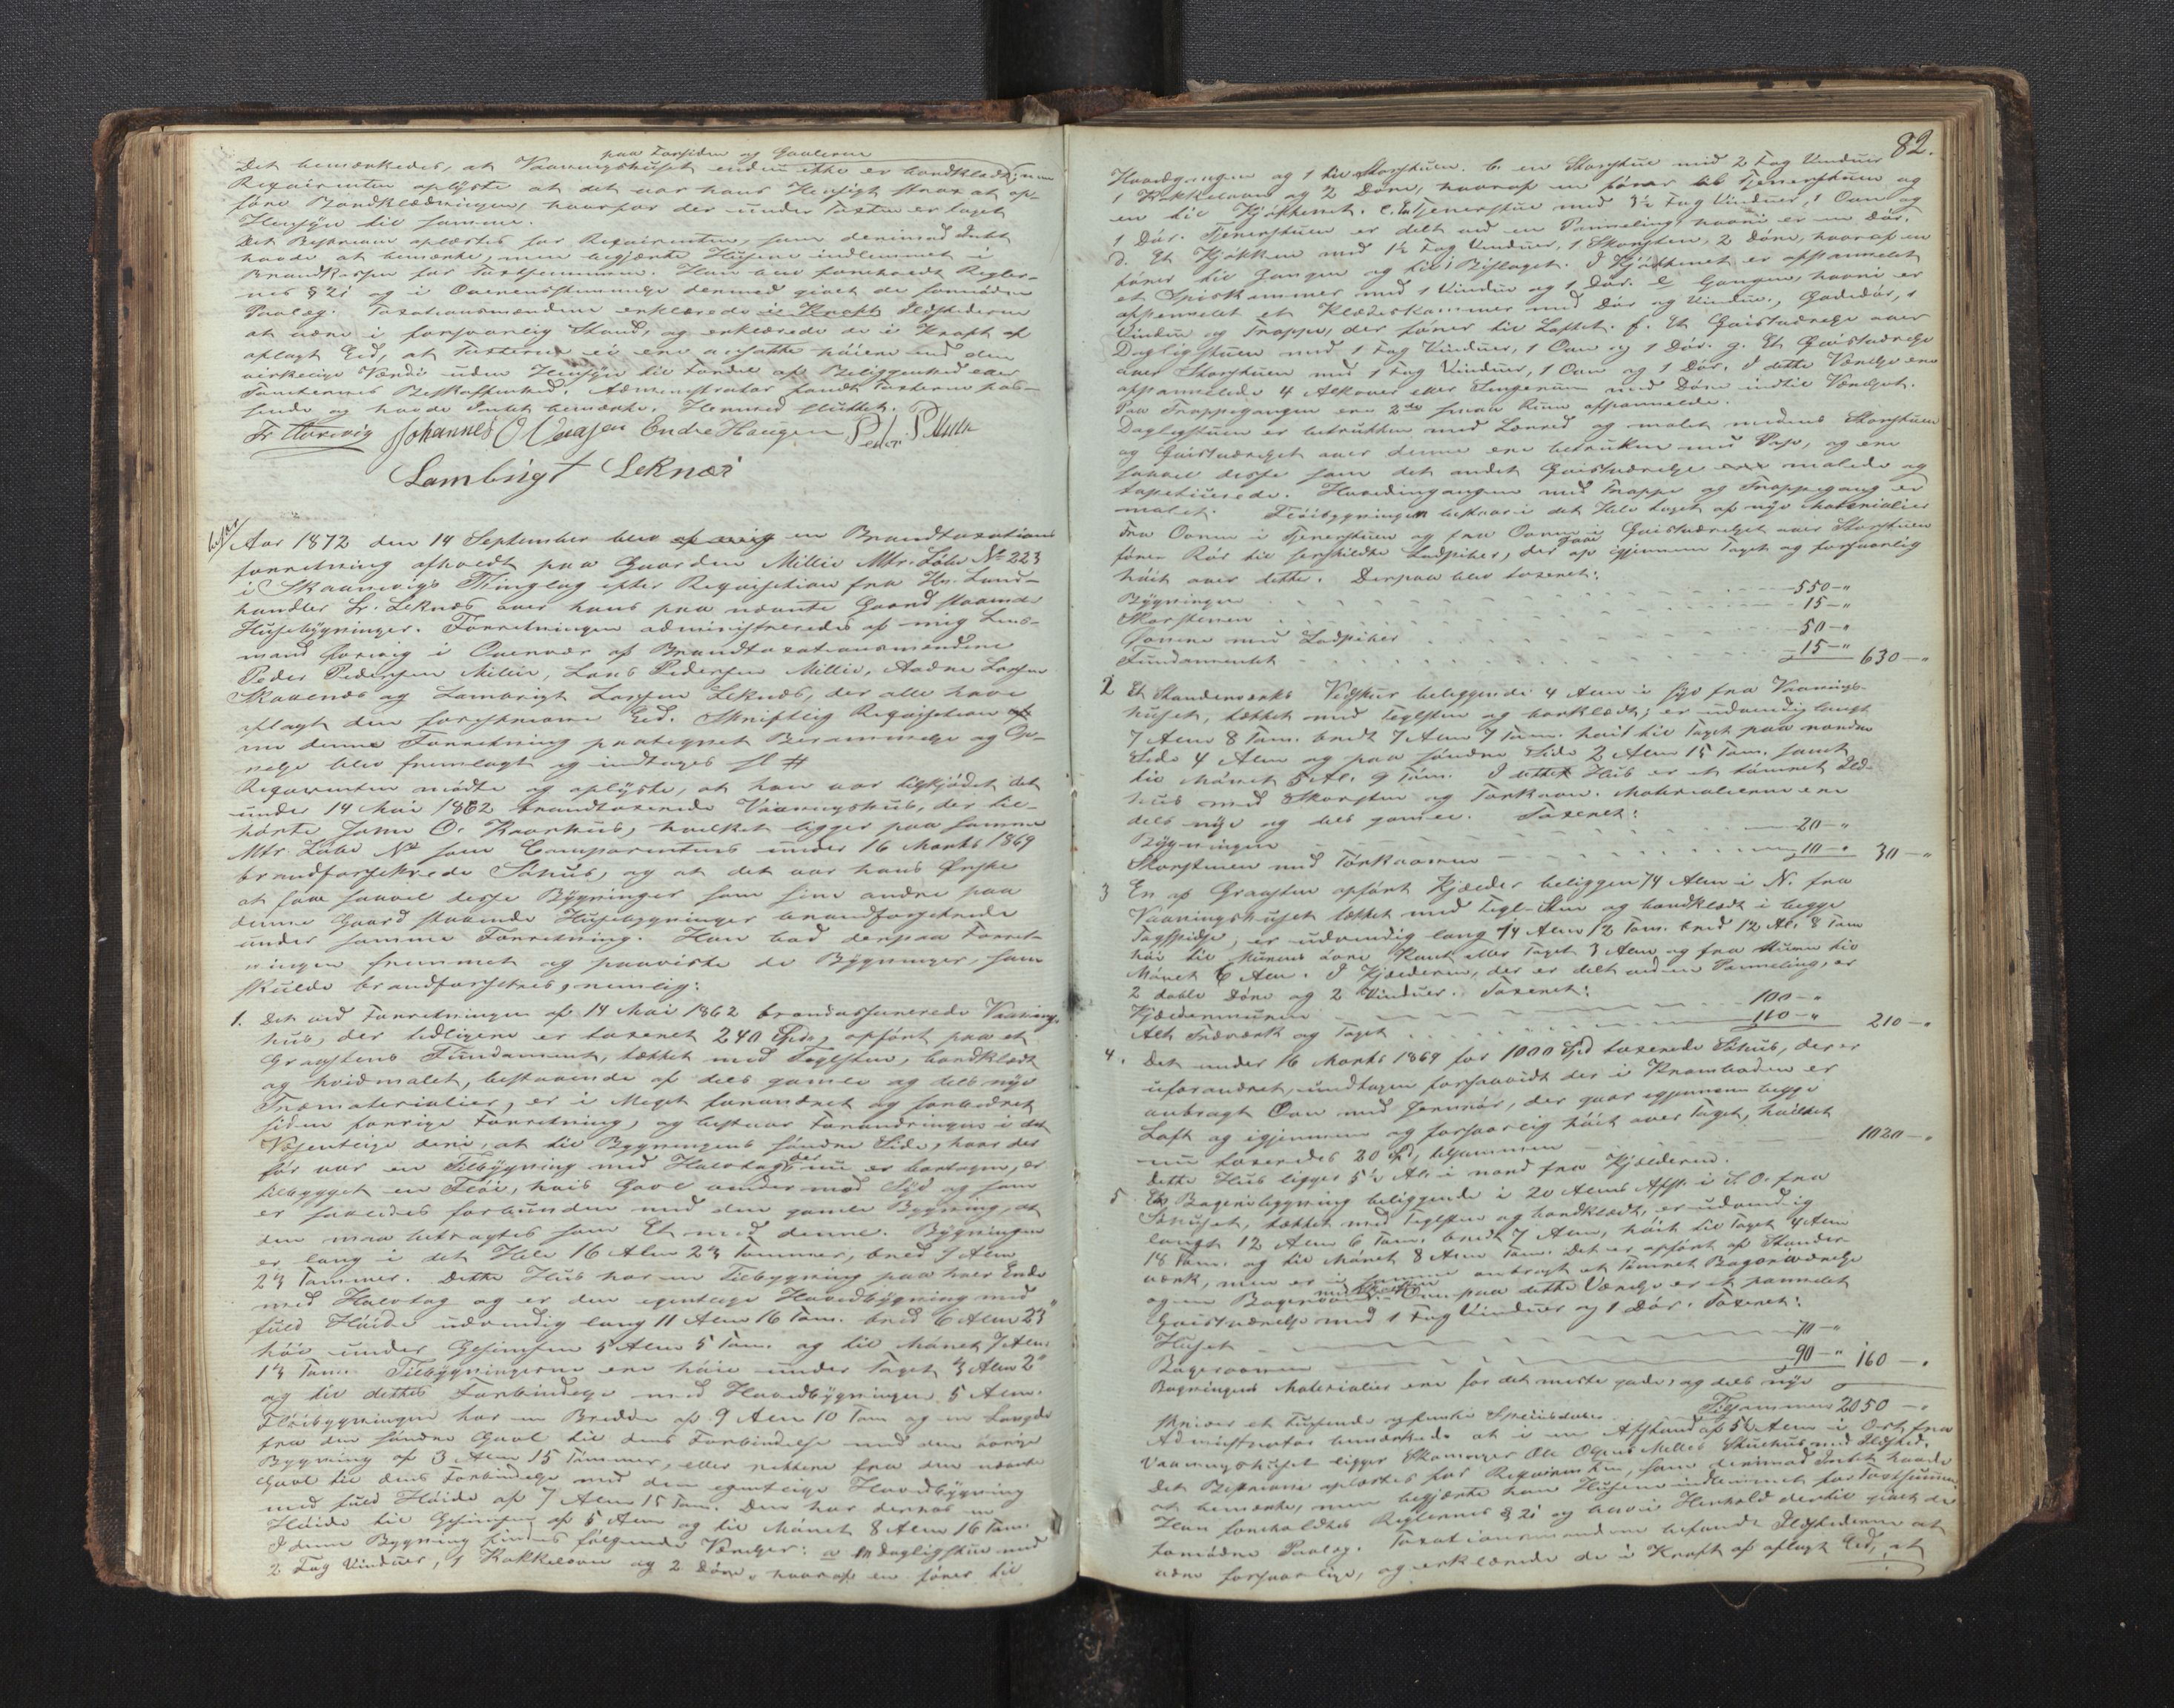 paa Forsiden og Gavlerne
Det bemærkedes, at Vaaningshuset endnu ikke er bordklædt, men
Requirenten oplyste at det var hans Hensigt strax at op-
føre Bordklædningen, hvorfor der under Taxten er taget
Hensyn til samme.
Det Beskrevne oplæstes for Requirenten, som derimod Intet
havde at bemærke, men begjærte Husene indlemmet i
Brandkassen for Taxtsummen. Han blev foreholdt Regler-
nes § 21 og i Overensstemmelse dermed givet de fornødne
Paalæg. Taxationsmændene erklærede i Kraft Ildstederne
at være i forsvarlig Stand, og erklærede de i Kraft af
aflagt Eed, at Taxterne ei ere ansatte høiere end den
virkelige Værdi uden Hensyn til Fordel af Beliggenhed eller
Tomternes Beskaffenhed. Administrator fandt Taxterne pas-
sende og havde Intet bemærke. Hermed sluttet.
Johannes O Vaagen Endre Haugen Peder P Milie
Lambrigt Leknæs
Aar 1872 den 14 September blev af mig en Brandtaxations
forretning afholdt paa Gaarden Millie Mtr. Løbe No 223
i Skaanevigs Thinglag efter Requisition fra Hr. Land-
handler Lr. Leknæs over hans paa nævnte Gaard staaende
Husebygninger. Forretningen administreredes af mig Lens-
mand i Overvær af Brandtaxationsmændene
Peder Pedersen Millie, Lars Pedersen Millie, Aadne Larsen
Skaanæs og Lambrigt Larsen Leknæs, der alle have
aflagt den foreskrevne Eed. Skriftlig Requisition af
om denne Forretning paategnet Berammelse og Op-
nelse blev fremlagt og indtages sl #
Requirenten mødte og oplyste, at han var tilskjødet det
under 14 Mai 1862 brandtaxerede Vaaningshus, der til-
hørte Jonn O. Kaarhus, hvilket ligger paa samme
Mtr. Løbe No som Comparentens under 16 Marts 1869
brandforsikrede Søhus, og at det var hans Ønske
at faa saavel disse Bygninger som sine andre paa
denne Gaard staaende Husebygninger brandforsikrede
under samme Forretning. Han bad derpaa Forret-
ningen fremmet og paaviste de Bygninger, som
skulde brandforsikres, nemlig:
1. Det ved Forretningen af 14 Mai 1862 brandassurerede Vaanings-
hus, der tidligere er taxeret 240 Spd, opført paa et
Graastens Fundament, tækket med Teglsten, bordklædt
og hvidmalet, bestaaende af dels gamle og dels nye
Træmaterialier, er i Meget forandret og forbedret
siden forrige Forretning, og bestaar Forandringen i det
Væsentlige deri, at til Bygningens søndre Side, hvor der
før var en Tilbygning med Halvtag, der nu er borttagen, er
tilbygget en Fløi, hvis Gavl vender mod Syd og som
er saaledes forbunden med den gamle Bygning, at
den maa betragtes som Et med denne. Bygningen
er lang i det Hele 16 Alen 23 Tommer, bred 7 Alen
23 Tommer. Dette Hus har en Tilbygning paa hver Ende
med Halvtag og er den egentlige Hovedbygning med
fuld Høide udvendig lang 11 Alen 16 Tom. bred 6 Alen 23"
høi under Gesimsen 5 Alen 5 Tom. og til Mønet 7 Alen
13 Tom. Tilbygningerne ere høie under Taget 3 Alen 2"
og til dettes Forbindelse med Hovedbygningen 5 Alen.
Fløibygningen har en Bredde af 9 Alen 10 Tom og en Længde
fra den søndre Gavl til dens Forbindelse med den øvrige
Bygning af 3 Alen 15 Tommer, eller rettere fra den nævnte
Gavl til dens Forbindelse med den egentlige Hovedbygning
med fuld Høide af 7 Alen 15 Tom. Den har derhos en
Høide til Gesimsen af 5 Alen og til Mønet 8 Alen 16 Tom.
I denne Bygning findes følgende Værelser: a En Dagligstue med
2 Fag Vinduer, 1 Kakkelovn og 2 Døre, hvoraf en fører til
82.
Hovedgangen og 1 til Storstuen. b. en Storstue med 2 Fag Vinduer
1 Kakkelovn og 2 Døre, hvoraf en fører til Tjenerstuen og
en til Kjøkkenet. c. En Tjenerstue med 3½ Fag Vinduer, 1 Ovn og
1 Dør. Tjenerstuen er delt ved en Panneling hvori er en Dør.
d. Et Kjøkken med 1½ Fag Vinduer, 1 Skorsten, 2 Døre, hvoraf en
fører til Gangen og til Bislaget. I Kjøkkenet er afpannelet
et Spiskammer med 1 Vindue og 1 Dør. e Gangen, hvori er
afpannelet et Klædeskammer med Dør og Vindue, Gadedør, 1
Vindue og Trappe, der fører til Loftet. f. Et Gaistværelse over
Dagligstuen med 1 Fag Vinduer, 1 Ovn og 1 Dør. g. Et Gaistværelse
over Storstuen med 1 Fag Vinduer, 1 Ovn og 1 Dør. I dette Værelse ere
afpannelede 4 Alkover eller Sengerum med Døre indtil Værelset.
Paa Trappegangen ere 2de smaa Rum afpannelede.
Dagligstuen er betrukken med Lærred og malet medens Storstuen
og Gaistværelset over denne ere betrukne med Pap, og ere
saavel disse som det andet Gaistværelse malede og
tapetserede. Hovedindgangen med Trappe og Trappegang er
malet. Fløibygningen bestaar i det Hele taget af nye Materialier
Fra Ovnen i Tjenerstuen og fra Ovnen i Gaistværelset over Storstuen
fører Rør til særskildte Ladpiber, der gaar op igjennem Taget og forsvarlig
høit over dette. Derpaa blev taxeret:
Bygningen 550 – "
Skorstenen 15 – "
med Ladpiber 50 – "
Fundamentet 15 – " 630 – "
2 Et Standerværks Vedskur beliggende 4 Alen i Syd fra Vaanings-
huset, tækket med Teglsten og bordklædt, er udvendig langt
7 Alen 8 Tom. bredt 7 Alen 7 Tom. høit til Taget paa nordre
Side 4 Alen og paa søndre Side 2 Alen 15 Tom. samt
til Mønet 5 Al. 9 Tom. I dette Hus er et tømret Ild-
hus med Skorsten og Tørkovn. Materialierne ere
dels nye og dels gamle. Taxeret:
Bygningen 20 – "
Skorstenen med Tørkeovnen 10 – " 30 – "
3 En af Graasten opført Kjælder beliggen 74 Alen i N. fra
Vaaningshuset tækket med Tegl-Sten og bordklædt i begge
Tagspidse, er udvendig lang 14 Alen 12 Tom. bred 12 Al. 8 Tom
høi til Murens øvre Kant eller Taget 3 Alen og fra Muren til
Mønet 6 Alen. I Kjælderen, der er delt ved en Panneling, er
2 doble Døre og 2 Vinduer. Taxeret:
Kjældermuren 100 – "
Alt Træværk og Taget 110 – " 210 – "
4. Det under 16 Marts 1869 for 1000 Spd taxerede Søhus, der er
uforandret, undtagen forsaavidt der i Kramboden er
anbragt Ovn med Jernrør, der gaar igjennem begge
Loft og igjennem og forsvarlig høit over Taget, hvilket
nu taxeredes 20 Spd, tilsammen 1020 – "
Dette Hus ligger 5½ Al. i nord fra Kjælderen.
5 En Bageribygning beliggende i 20 Alens Afst. i S. O. fra
Søhuset, tækket med Teglsten og bordklædt, er udvendig
langt 12 Alen 6 Tom. bredt 7 Alen, høit til Taget 4 Alen
18 Tom. og til Mønet 8 Alen Tom. Det er opført af Stander-
værk, men er i samme anbragt et Tømret Bagerværelse
og en Bagerovn med Skorsten. Ovenpaa dette Værelse er et pannelet
Gaistværelse med 1 Fag Vinduer og 1 Dør. Taxeret:
Huset 70 – "
Bagerovnen 90 – " 160 – "
Bygningens Materialier ere for det meste gode, og dels nye
Tilsammen 2050 – "
Skriver et Tusende og femti Speciesdaler.
Administrator bemærkede at i en Afstand af 5½ Alen i Ost fra
Vaaningshuset ligger Skomager Ole Olsens Millie Stuehus med Ildsted.
Det Beskrevne oplæstes for Requirenten, som derimod Intet havde
at bemærke, men begjærte han Husene indlemmet for Taxtsummen
Han foreholdtes Reglernes § 21 og blev i Henhold dertil givet de
fornødne Paalæg. Taxationsmændene befandt Ildstederne at
være forsvarlige, og erklærede de i Kraft af aflagt Eed, at